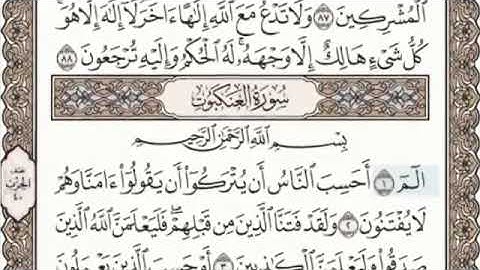 ٱلْمُشْرِكِينَ ٨٧ وَلَا تَدْعُ مَعَ ٱللَّهِ إِلَٰهًا ءَاخَرَ لَآ إِلَٰهَ إِلَّا هُوَ
كُلُّ شَىْءٍ هَالِكٌ إِلَّا وَجْهَهُۥ لَهُ ٱلْحُكْمُ وَإِلَيْهِ تُرْجَعُونَ ٨٨
سُورَةُ العَنكَبُوتِ
بِسْمِ ٱللَّهِ ٱلرَّحْمَٰنِ ٱلرَّحِيمِ
الٓمٓ ١ أَحَسِبَ ٱلنَّاسُ أَن يُتْرَكُوٓا۟ أَن يَقُولُوٓا۟ ءَامَنَّا وَهُمْ
لَا يُفْتَنُونَ ٢ وَلَقَدْ فَتَنَّا ٱلَّذِينَ مِن قَبْلِهِمْ ۖ فَلَيَعْلَمَنَّ ٱللَّهُ ٱلَّذِينَ
صَدَقُوا۟ وَلَيَعْلَمَنَّ ٱلْكَٰذِبِينَ ٣ أَمْ حَسِبَ ٱلَّذِينَ يَعْمَلُونَ
نصف
الحزب
٤٠